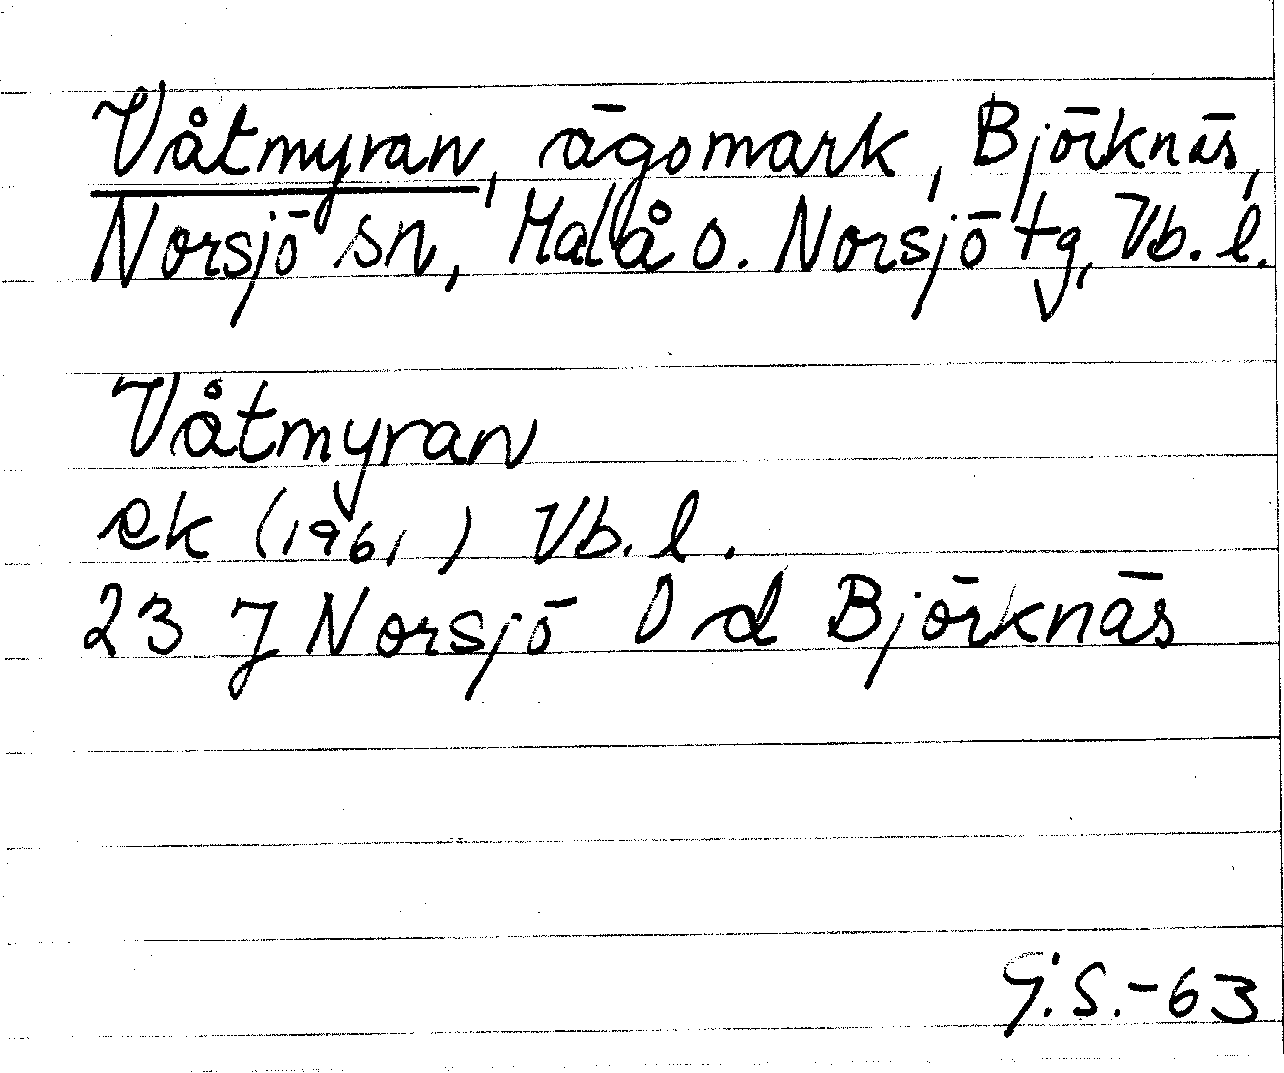 Våtmyran, ägomark, Björknäs,
Norsjö sn, Malå o. Norsjö tg, Vb. l.
Våtmyran
ek (1961) Vb. l.
23 J Norsjö 0 d Björknäs
G.S.-63